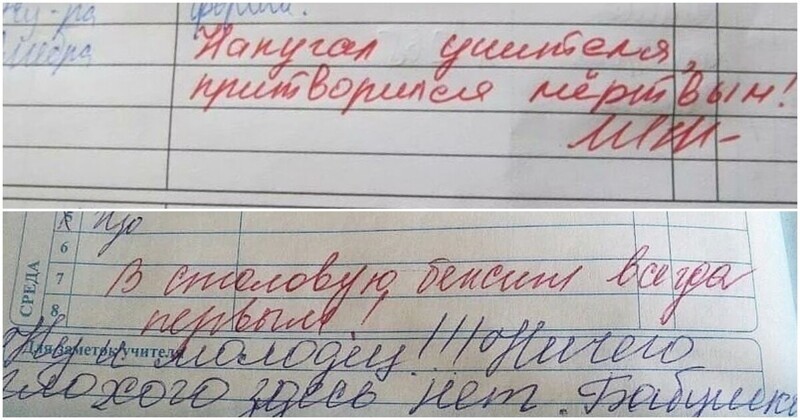 ну-ра
форма.
Напугал учителя,
притворился мёртвым!
ИЗО
СРЕДА
6
7
8
В столовую бежит всегда
первым!
Для заметок учителя
Ну и молодец!!! Ничего
плохого здесь нет. Бабушка